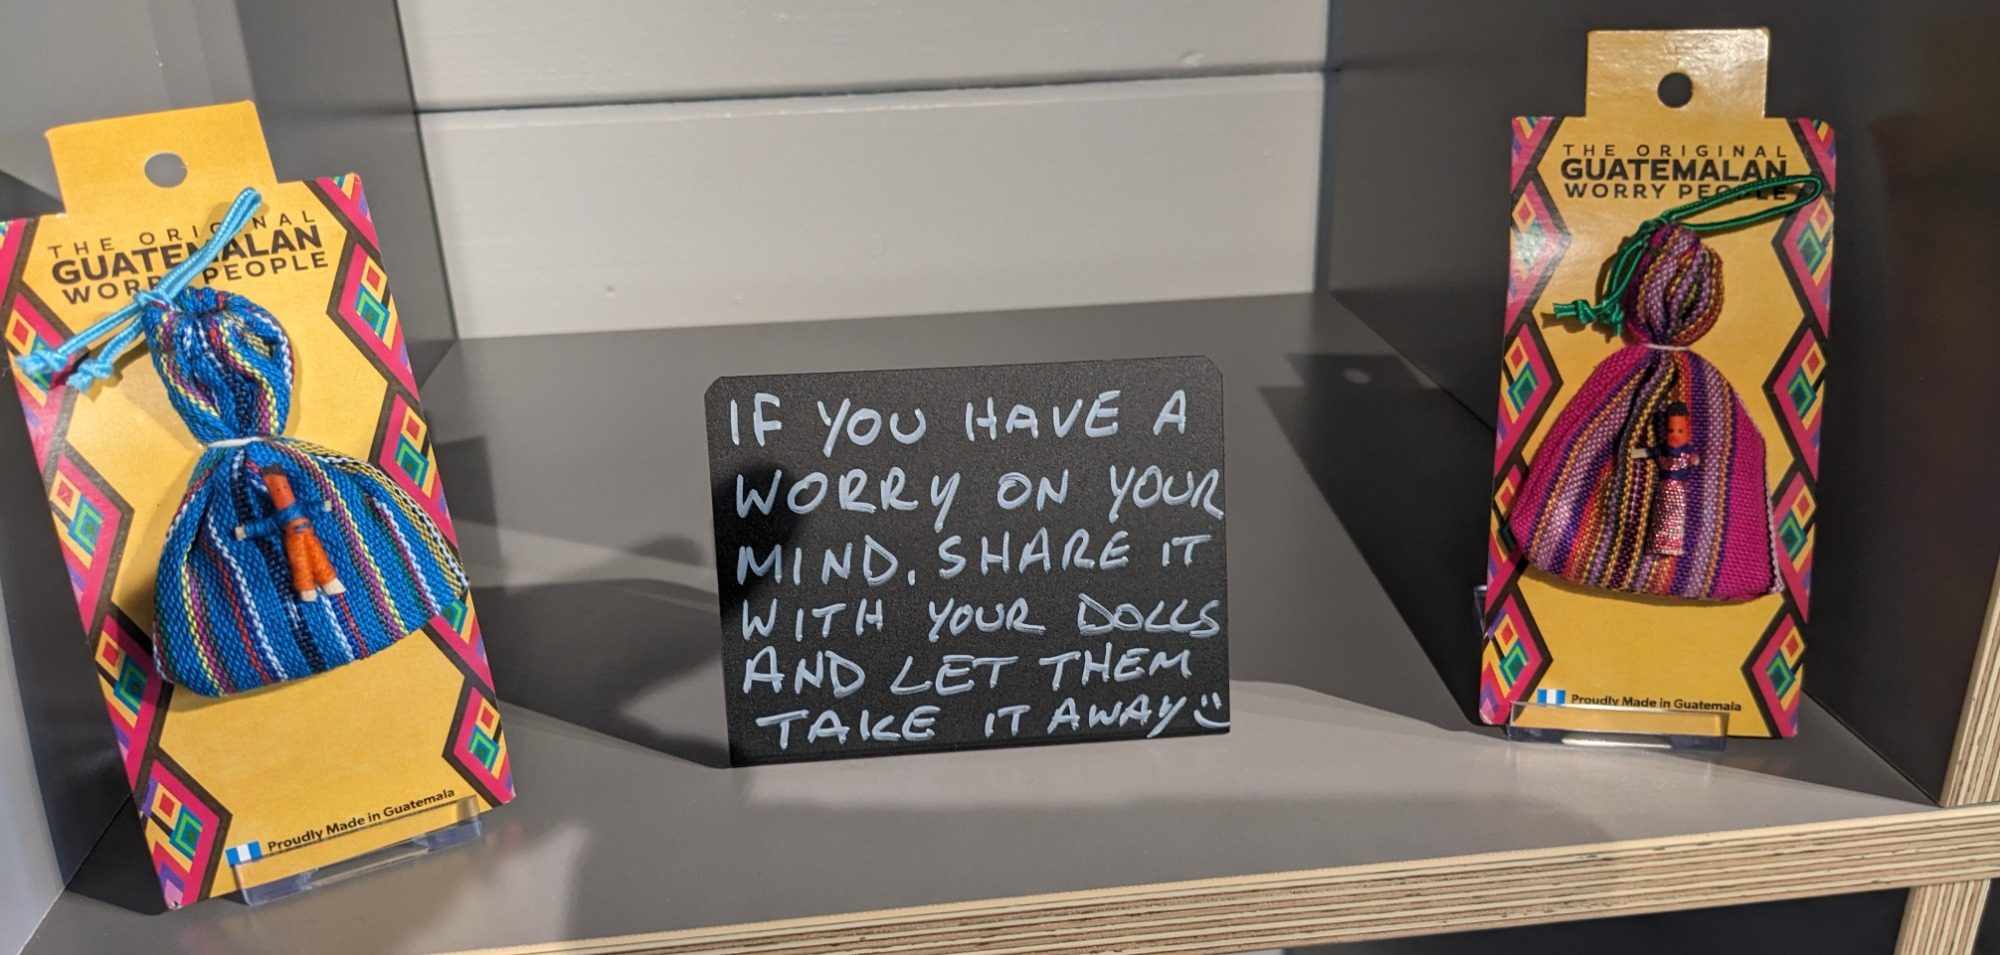 THE ORIGINAL
GUATEMALAN
WORRY PEOPLE
Proudly Made in Guatemala
IF YOU HAVE A
WORRY ON YOUR
MIND. SHARE IT
WITH YOUR DOLLS
AND LET THEM
TAKE IT AWAY
THE ORIGINAL
GUATEMALAN
WORRY PEOPLE
Proudly Made in Guatemala